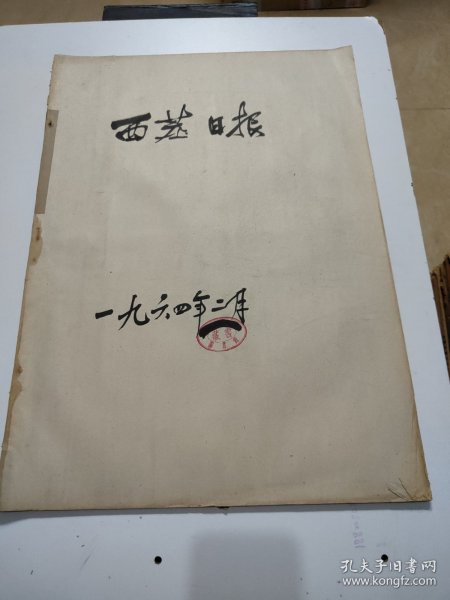 西藏日报
一九六四年二月
孔夫子旧书网
www.kongfz.com